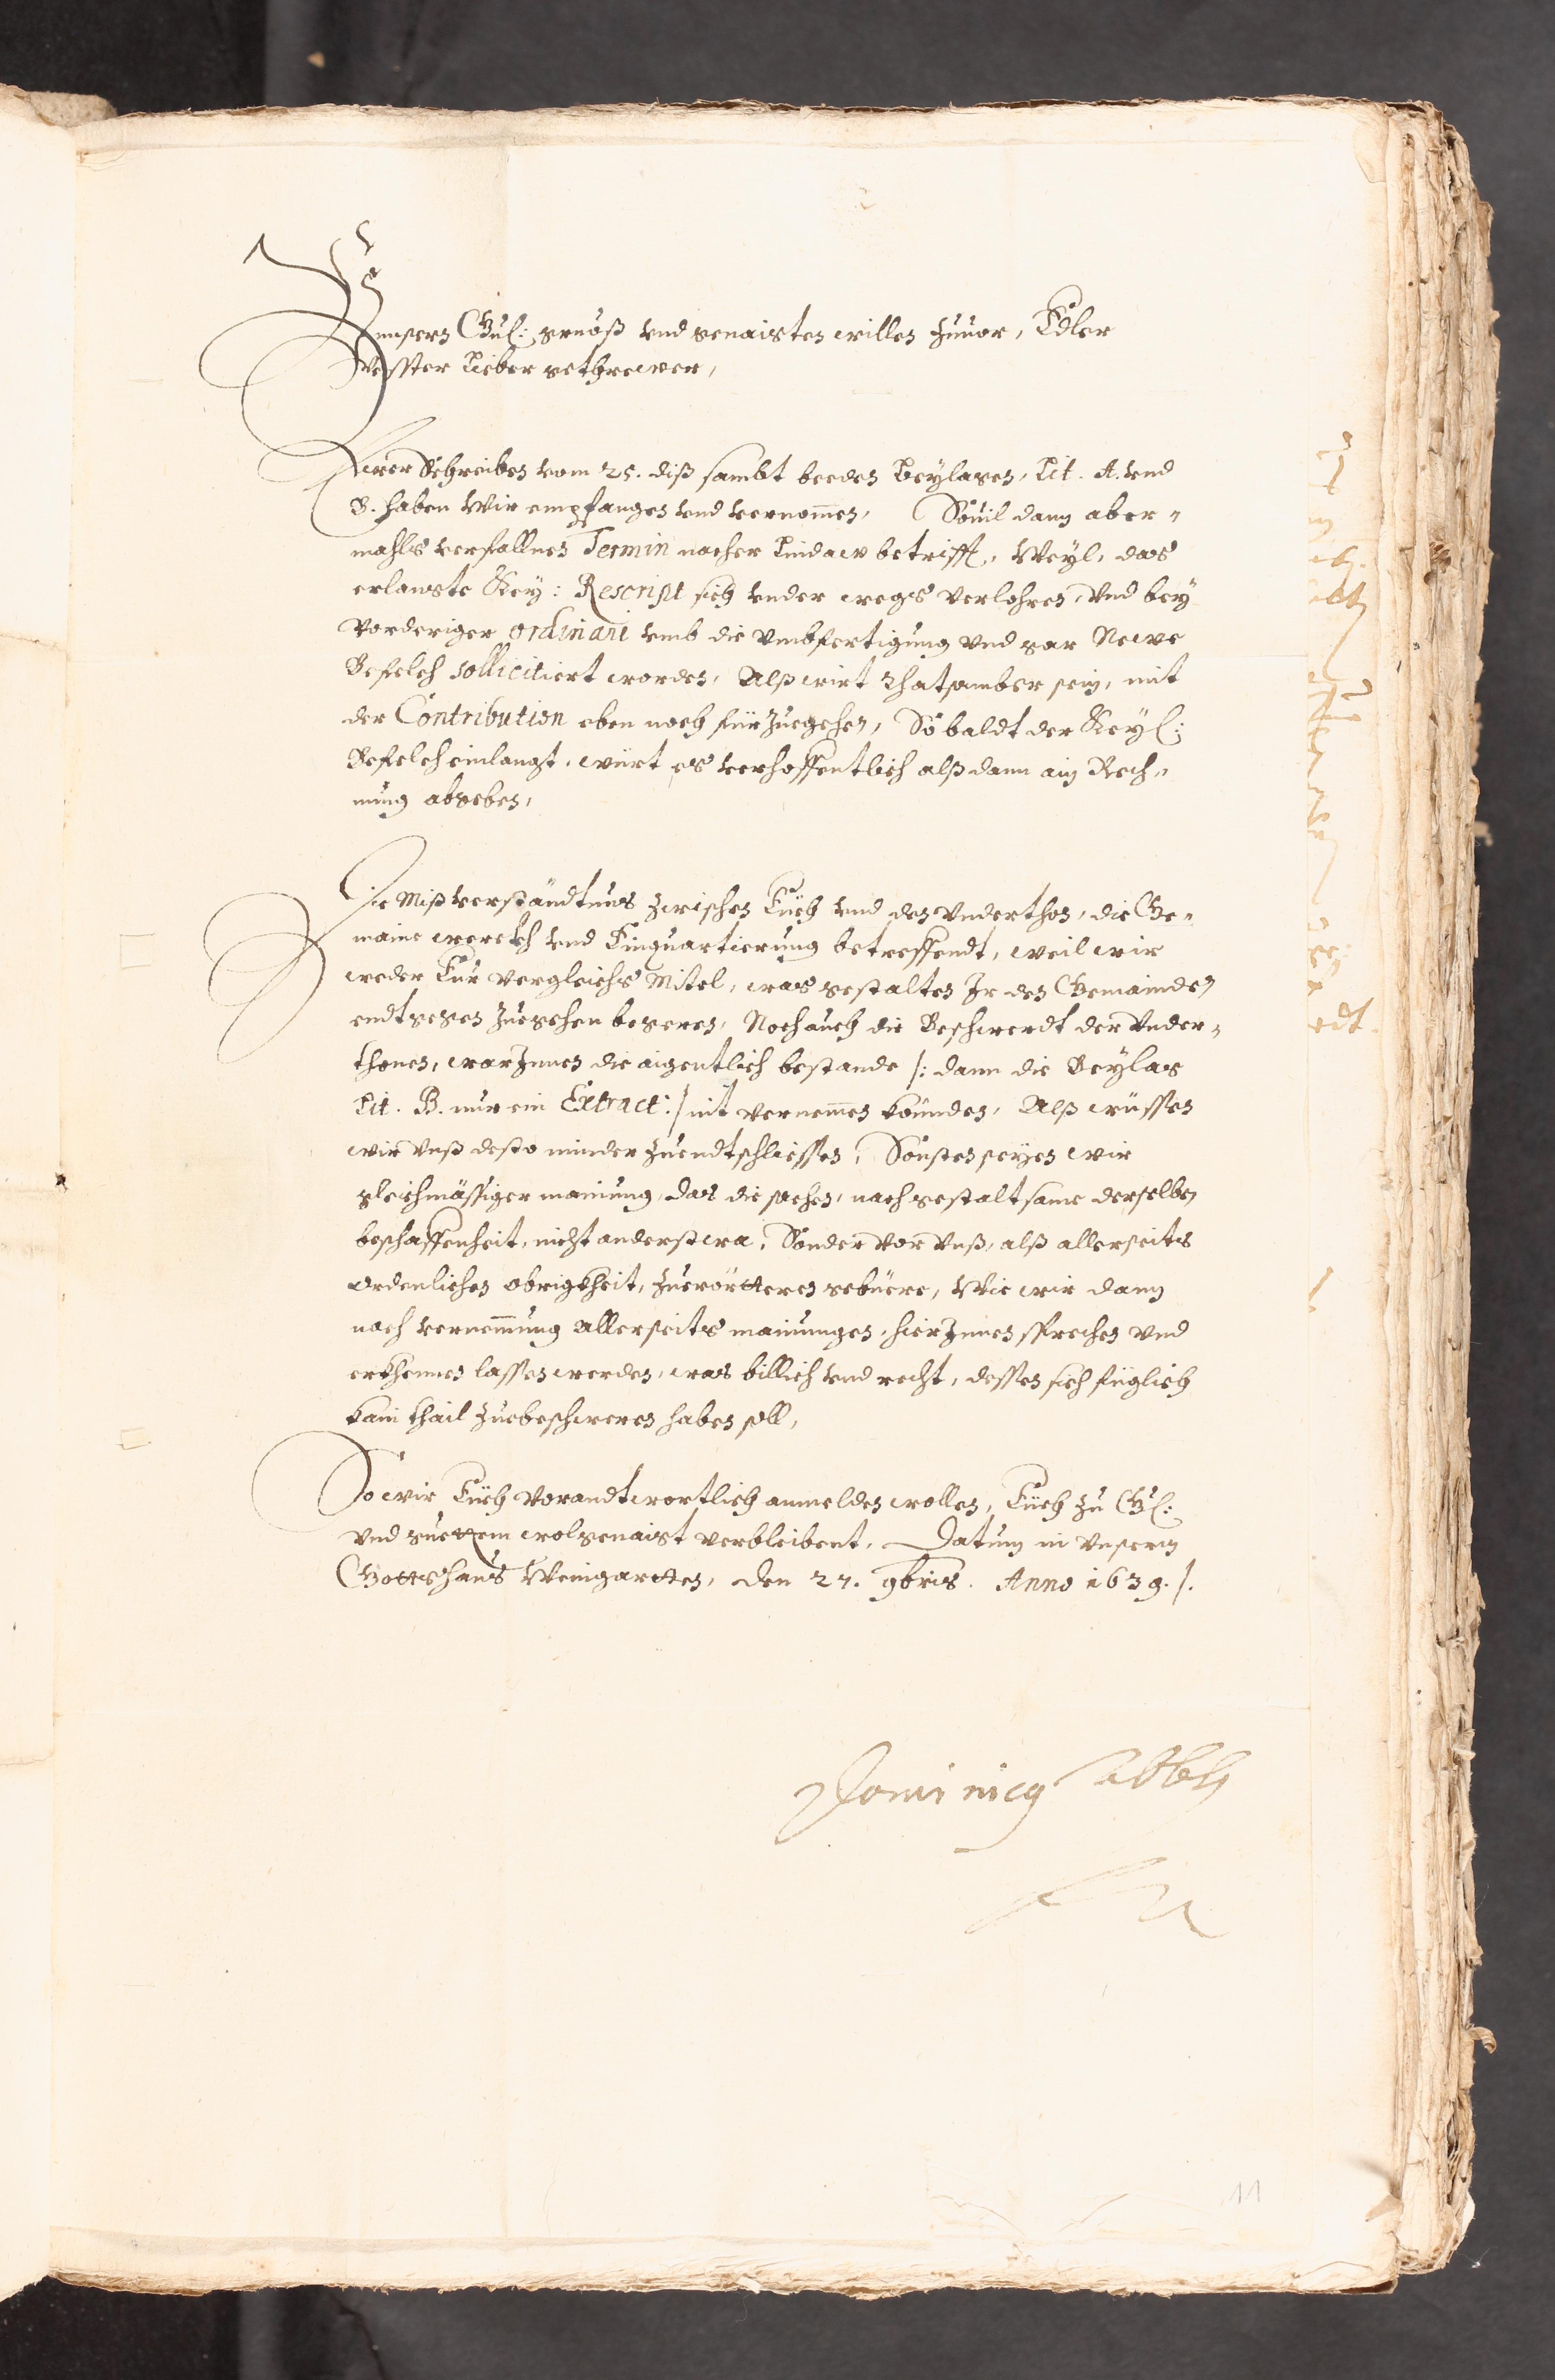 Vnnsern Gn: grueß vnd genaigten willen zuuor, Edler
Vesster Lieber gethrewer,
Ewer Schreiben vom 25. diß sambt beeden Beylagen, Lit. A. vnd
B. haben Wir empfangen vnd vernommen, Souil dann aber-
mahls verfallnen Termin nacher Lindaw betrifft, Weyl, das
erlangte Key: Rescript sich vnder wegs verlohren, vnd bey
vorderiger ordinari vmb die vmbfertigung vnd gar Newe
Befelch sollicitiert worden, Alß wirt rhatsamber sein, mit
der Contribution eben noch fürzuegehen, So baldt der Keyl:
Befelch einlangt, würt es verhoffentlich alß dann ain Rech-
nung abgeben,
Die Mißverständtnus zwischen Euch vnd den Vnderthonen, die Ge-
maine werckh vnd Einquartierung betreffendt, weil wir
weder Eur vergleichs Mitel, was gestalten Ir den Gemainden
endtgegen zuegehen begeren, Noch auch die Beschwerdt der Vnder-
thonen, warInnen die aigentlich bestande /: dann die Beylag
Lit. B. nur ein Extract :/ nit vernemmen könnden, Alß wüssen
wir Vnß desto minder zuendtschliessen, Sonsten seyen wir
gleichmässiger mainung, das die sachen, nach gestaltsame derselben
beschaffenheit, nicht anderstwa, Sonder vor Vnß, alß allerseits
ordenlichen obrigkheit, zuerörtteren gebüere, Wie wir dann
nach vernemmung allerseits mainungen, hierInnen sprechen vnd
erkhennen lassen werden, was billich vnd recht, dessen sich füglich
kain thail zuebeschweren haben soll,
So wir Euch vorandtwortlich anmelden wollen, Euch zu Gn:
vnd guettem wolgenaigt verbleibent, Datum in Vnserm
Gottshaus Weingartten, den 27. 9bris. Anno 1639./.
Dominicus Abbt
11